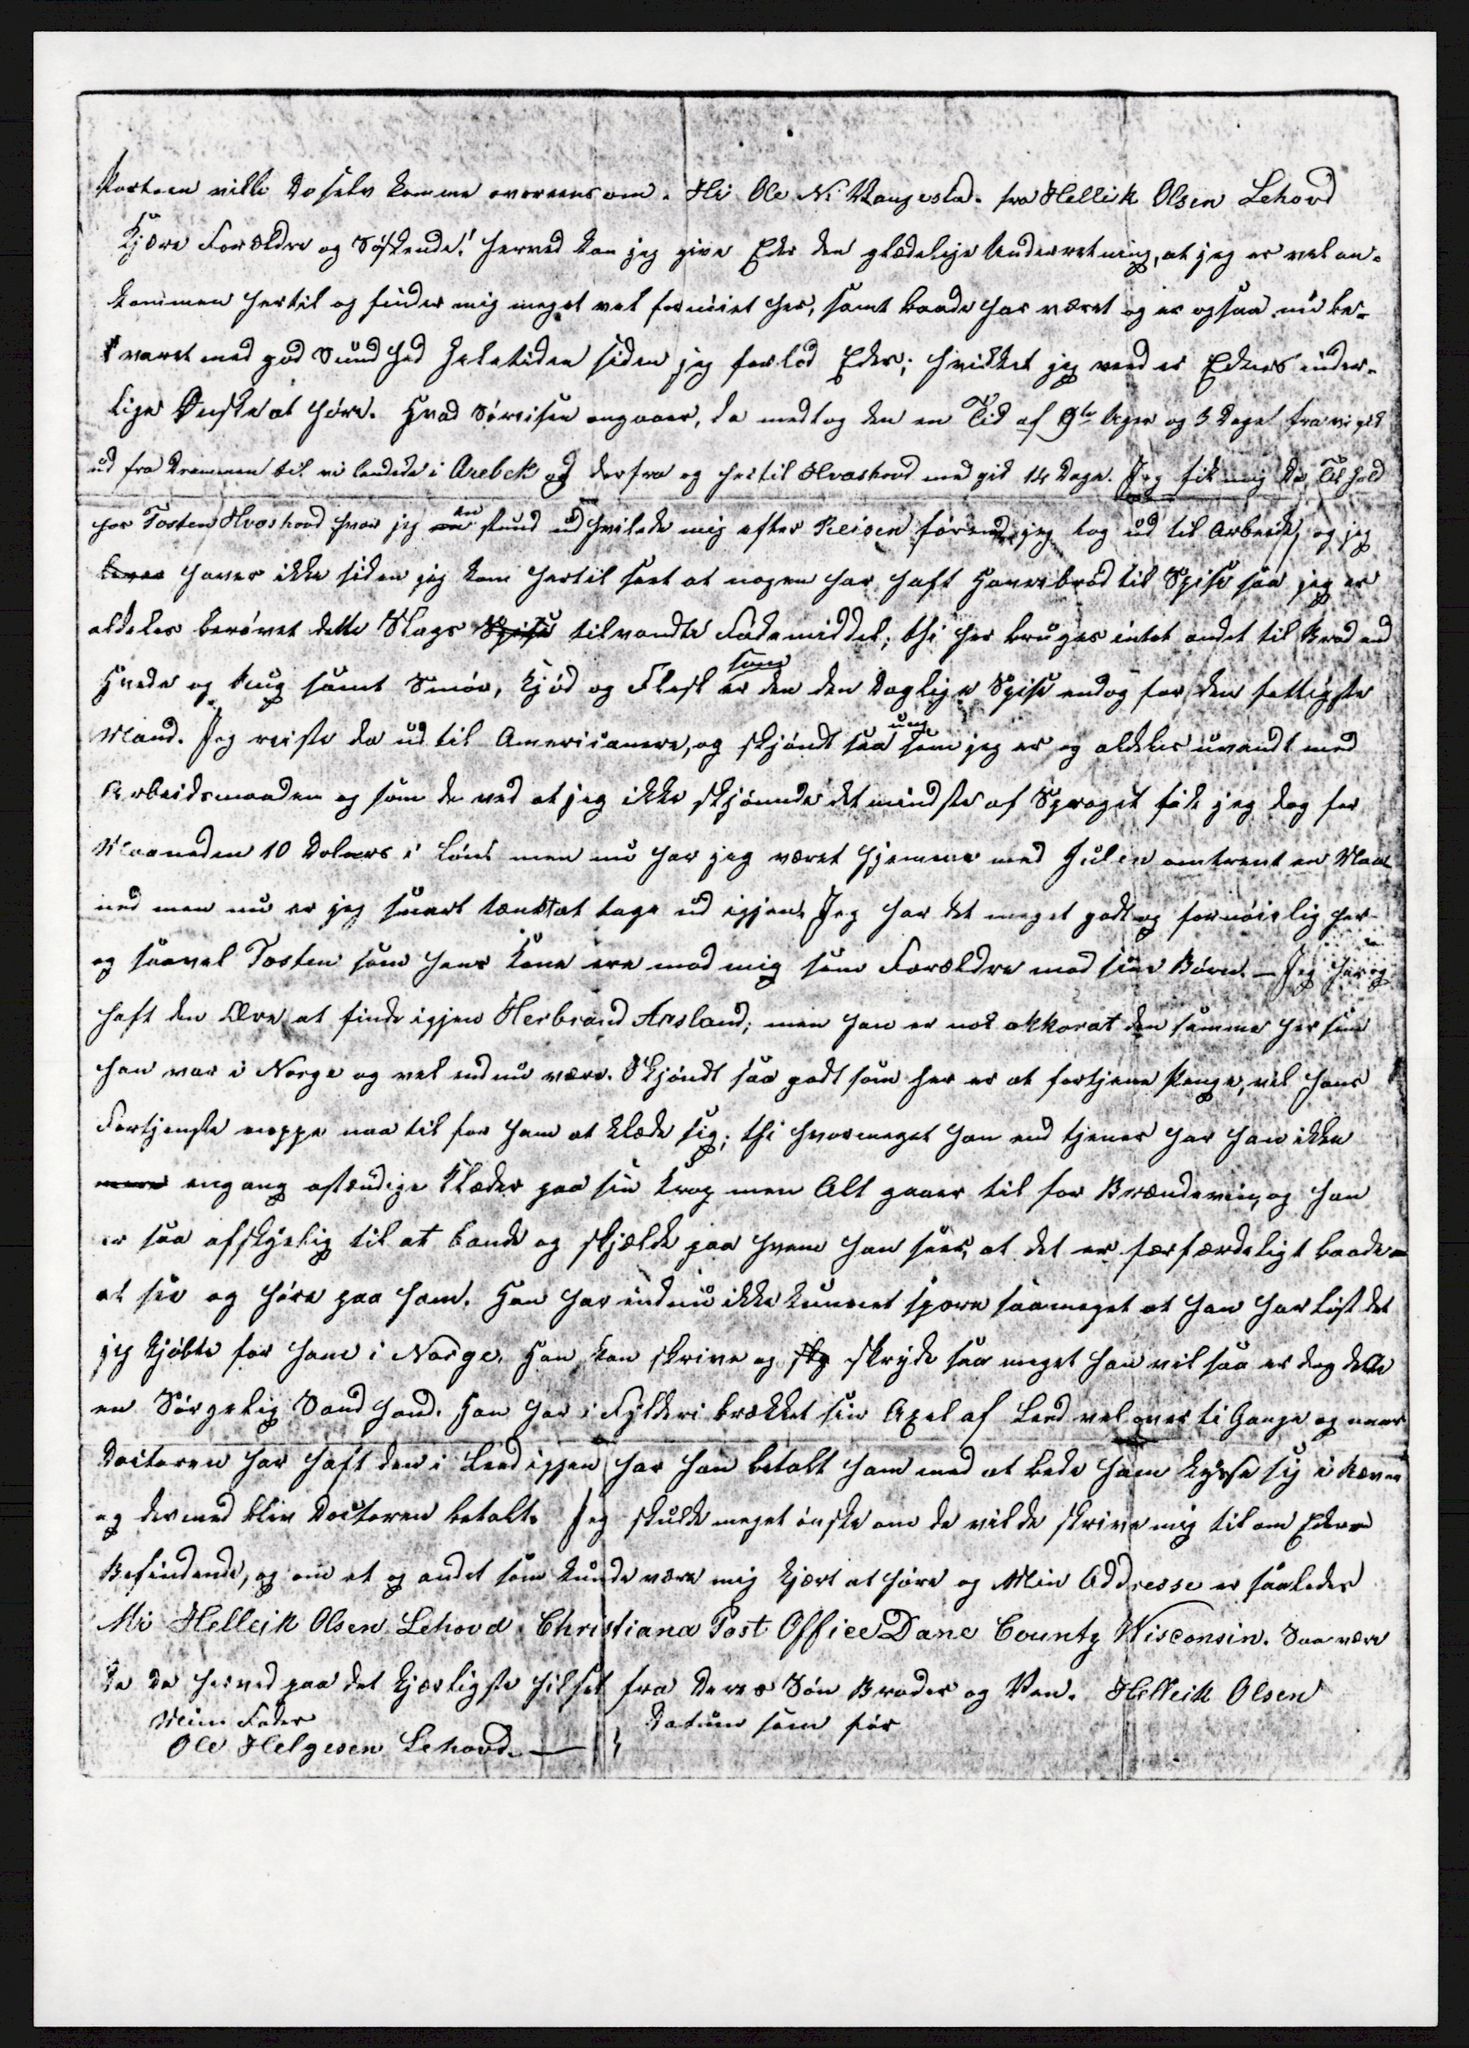 Portoen ville da selv komme overeens om. Hr Ole Ni Wangestad. fra Hellik Olsen Lehovd
Kjære Forældre og Søskende! herved kan jeg give Eder den glædelige Underretning, at jeg er vel an-
kommen hertil og finder mig meget vel fornøiet her, samt baade har været og er ogsaa nu be-
varet med god Sundhed heletiden siden jeg forlod Eder; hvilket jeg veed er Eders inder-
lige Ønske at høre. Hvad Søreisen angaaer, da medtog den en Tid af 9te Uger og 3 Dage fra vi gik
ud fra Drammen til vi landede i Arebek og derfra og hertil Hvashovd med gik 14 Dage. Jeg fik mig da Tilhold
hos Tosten Hvashovd hvor jeg en stund udhvilede mig efter Reisen førend jeg tog ud til Arbeide, og jeg
haver ikke siden jeg kom hertil seet at nogen har haft Havrebrød til Spise saa jeg er
aldeles berøvet dette Slags Spise tilvandte Fødemiddel; thi her bruges intet andet til Brød end
Hvede og Rug samt Smør, Kjød og Flesk som er den den Daglige Spise endog for den fattigste
Mand. Jeg reiste da ud til Americanere, og skjøndt saa ung som jeg er og aldeles uvandt med
Arbeidsmaaden og som de ved at jeg ikke skjønnde det mindste af Sproget fik jeg dog for
Maaneden 10 Dolars i Løn men nu har jeg været hjemme med Julen omtrent en Maa
ned men nu er jeg snart tænkt at tage ud igjen. Jeg har det meget godt og fornøielig her
og saavel Tosten som hans Kone ere mod mig som Forældre mod sine Børn. — Jeg har og
haft den Ære at finde igjen Herbrand Aasland; men han er nok akkorat den samme her som
han var i Norge og vel endnu være. Skjøndt saa godt som her er at fortjene Penge, vil hans
Fortjenste neppe naa til for ham at klæde sig; thi hvormeget han end tjener har han ikke
engang astændige Klæder paa sin Krop men Alt gaaer til for Brændeviin, og han
er saa afskyelig til at bande og skjælde paa hvem han seer, at det er forfærdeligt baade
at see og høre paa ham. Han har endnu ikke kunnet spare saameget at han har løst det
jeg kjøbte for ham i Norge. Han kan skrive og skryde saa meget han vil saa er dog dette
en Sørgelig Sandhed. Han har i Fylderi brækket sin Axel af Leed vel over ti Gange og naar
Doctoren har haft den i Leed igjen har han betalt ham med at bede ham kysse sig i Røven
og dermed bliv Doctoren betalt. Jeg skulde meget ønske om de vilde skrive mig til om Eders
Befindende, og om et og andet som kunde være mig kjært at høre og Min Addresse er saaledes
Mr Helleik Olsen Lehovd. Christiana Post Office Dane County Wisconsin. Saa være
de da herved paa det kjærligste hilset fra Deres Søn Broder og Ven. Helleik Olsen
Min Fader
Datum som før
Ole Helgesen Lehovd. —